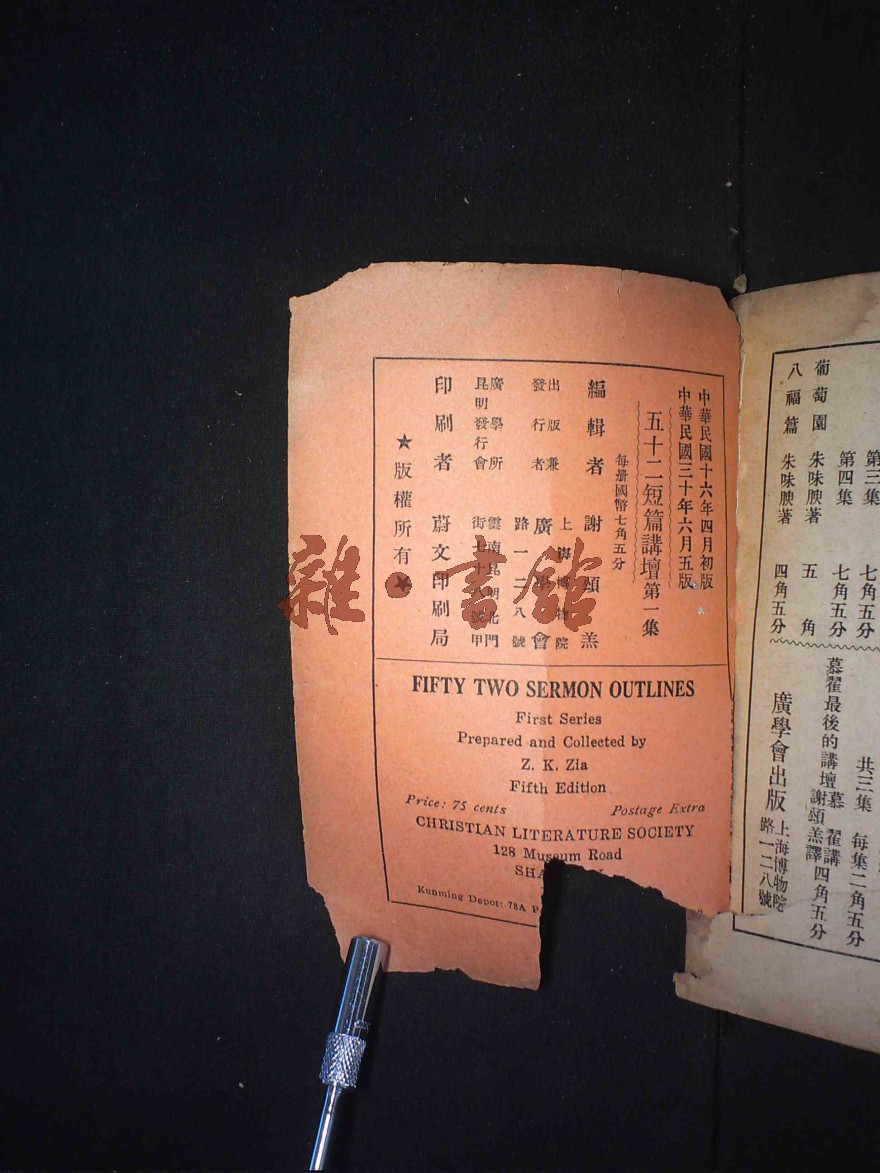 中華民國十六年四月初版
中華民國三十年六月五版
五十二短篇講壇第一集
每册國幣七角五分
編輯者 謝頌羔
出版兼
發行者 廣學會
上海博物院
路一二八號
廣學會
昆明發行所
雲南昆明北門
街七十八號甲
印刷者 蔚文印刷局
★版權所有★
FIFTY TWO SERMON OUTLINES
First Series
Prepared and Collected by
Z. K. Zia
Fifth Edition
Price: 75 cents Postage Extra
CHRISTIAN LITERATURE SOCIETY
128 Museum Road
SHA
Kunming Depot: 78A P
第三集 七角五分
第四集 七角五分
葡萄園 朱味腴著 五角
八福篇 朱味腴著 四角五分
共三集 每集二角五分
慕翟最後的講壇 慕翟講 謝頌羔譯 四角五分
廣學會出版 上海博物院路一二八號
雜·書館